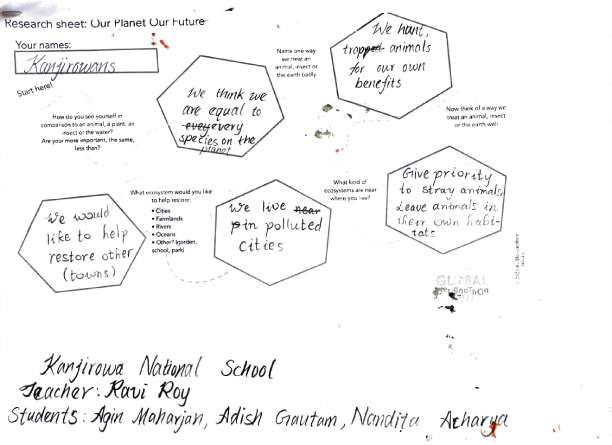 Research sheet: Our Planet Our Future
Your names:
Kanjirowans
Start here!
How do you see yourself in
comparison to an animal, a plant, an
insect or the water?
Are your more important, the same,
less than?
We think we
are equal to
every
species on the
planet
Name one way
we treat an
animal, insect or
the earth badly
We hunt,
trapped animals
for our own
benefits
Now think of a way we
treat an animal, insect
or the earth well
Give priority
to stray animals,
Leave animals in
their own habi-
tats
What kind of
ecosystems are near
where you live?
We live near
in polluted
cities
What ecosystem would you like
to help restore:
• Cities
• Farmlands
• Rivers
• Oceans
• Other? (garden,
school, park)
We would
like to help
restore other
(towns)
GLOBAL
Kanjirowa National School
Teacher: Ravi Roy
Students: Agin Maharjan, Adish Gautam, Nandita Acharya